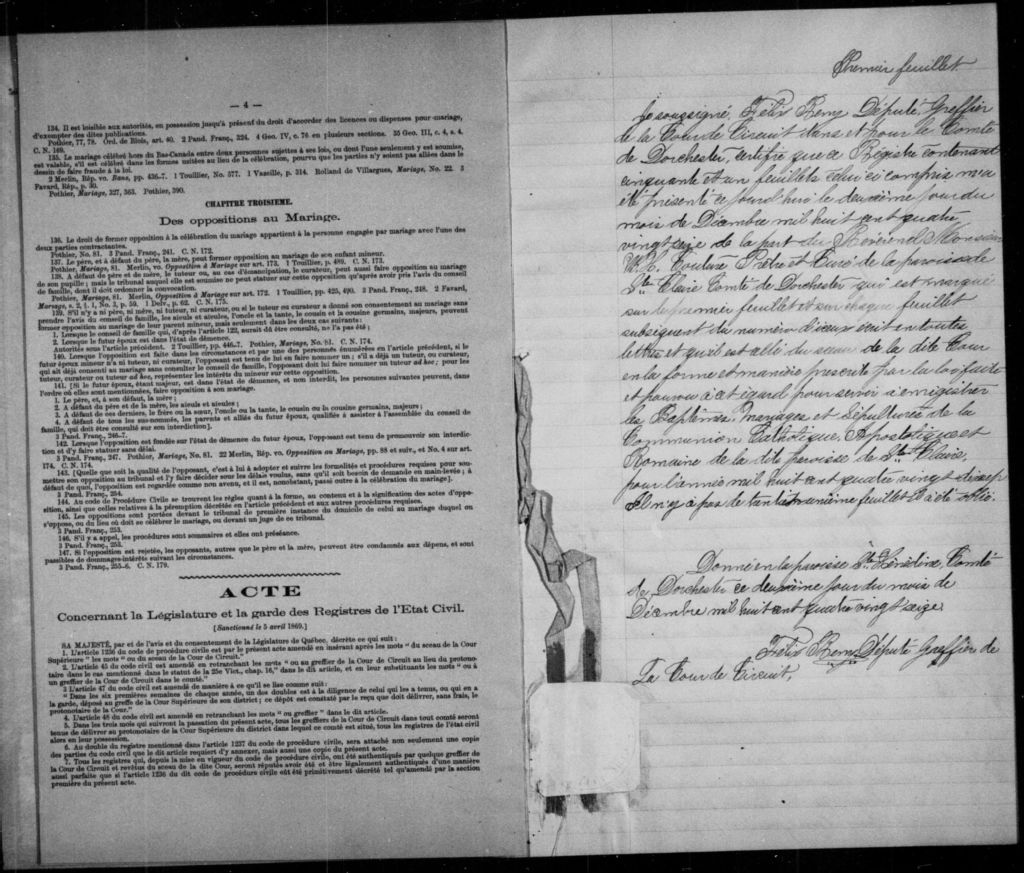 — 4 —
134. Il est loisible aux autorités, en possession jusqu'à présent du droit d'accorder des licences ou dispenses pour mariage,
d'exempter des dites publications.
Pothier, 77, 78. Ord. de Blois, art. 40. 2 Pand. Franç., 224. 4 Geo. IV, c. 76 en plusieurs sections. 35 Geo. III, c. 4, s. 4.
C. N. 169.
135. Le mariage célébré hors du Bas-Canada entre deux personnes sujettes à ses lois, ou dont l'une seulement y est soumise,
est valable, s'il est célébré dans les formes usitées au lieu de la célébration, pourvu que les parties n'y soient pas allées dans le
dessein de faire fraude à la loi.
2 Merlin, Rép. vo. Bans, pp. 436-7. 1 Touillier, No. 577. 1 Vazeille, p. 314. Rolland de Villargues, Mariage, No. 22. 3
Favard, Rép., p. 30.
Pothier, Mariage, 327, 363. Pothier, 390.
CHAPITRE TROISIEME.
Des oppositions au Mariage.
136. Le droit de former opposition à la célébration du mariage appartient à la personne engagée par mariage avec l'une des
deux parties contractantes.
Pothier, No. 81. 3 Pand. Franç., 241. C. N. 172.
137. Le père, et à défaut du père, la mère, peut former opposition au mariage de son enfant mineur.
Pothier, Mariage, 81. Merlin, vo. Opposition à Mariage sur art. 173. 1 Touillier, p. 489. C. N. 173.
138. A défaut de père et de mère, le tuteur ou, au cas d'émancipation, le curateur, peut aussi faire opposition au mariage
de son pupille ; mais le tribunal auquel elle est soumise ne peut statuer sur cette opposition qu'après avoir pris l'avis du conseil
de famille, dont il doit ordonner la convocation.
Pothier, Mariage, 81. Merlin, Opposition à Mariage sur art. 172. 1 Touillier, pp. 425, 490. 3 Pand. Franç., 248. 2 Favard,
Mariage, s. 2, § 1, No. 3, p. 59. 1 Delv., p. 62. C. N. 175.
139. S'il n'y a ni père, ni mère, ni tuteur, ni curateur, ou si le tuteur ou curateur a donné son consentement au mariage sans
prendre l'avis du conseil de famille, les aïeuls et aïeules, l'oncle et la tante, le cousin et la cousine germains, majeurs, peuvent
former opposition au mariage de leur parent mineur, mais seulement dans les deux cas suivants :
1. Lorsque le conseil de famille qui, d'après l'article 122, aurait dû être consulté, ne l'a pas été ;
2. Lorsque le futur époux est dans l'état de démence.
Autorités sous l'article précédent. 2 Touillier, pp. 446-7. Pothier, Mariage, No. 81. C. N. 174.
140. Lorsque l'opposition est faite dans les circonstances et par une des personnes énumérées en l'article précédent, si le
futur époux mineur n'a ni tuteur, ni curateur, l'opposant est tenu de lui en faire nommer un ; s'il a déjà un tuteur, ou curateur,
qui ait déjà consenti au mariage sans consulter le conseil de famille, l'opposant doit lui faire nommer un tuteur ad hoc ; pour les
tuteur, curateur ou tuteur ad hoc, représenter les intérêts du mineur sur cette opposition.
141. [Si le futur époux, étant majeur, est dans l'état de démence, et non interdit, les personnes suivantes peuvent, dans
l'ordre où elles sont mentionnées, faire opposition à son mariage.
1. Le père, et, à son défaut, la mère ;
2. A défaut du père et de la mère, les aïeuls et aïeules ;
3. A défaut de ces derniers, le frère ou la sœur, l'oncle ou la tante, le cousin ou la cousine germains, majeurs ;
4. A défaut de tous les sus-nommés, les parents et alliés du futur époux, qualifiés à assister à l'assemblée du conseil de
famille, qui doit être consulté sur son interdiction].
3 Pand. Franç., 246-7.
142. Lorsque l'opposition est fondée sur l'état de démence du futur époux, l'opposant est tenu de promouvoir son interdic-
tion et d'y faire statuer sans délai.
3 Pand. Franç., 247. Pothier, Mariage, No. 81. 22 Merlin, Rép. vo. Opposition au Mariage, pp. 88 et suiv., et No. 4 sur art.
174. C. N. 174.
143. [Quelle que soit la qualité de l'opposant, c'est à lui à adopter et suivre les formalités et procédures requises pour sou-
mettre son opposition au tribunal et l'y faire décider sous les délais voulus, sans qu'il soit besoin de demande en main-levée ; à
défaut de quoi, l'opposition est regardée comme non avenue, et il est, nonobstant, passé outre à la célébration du mariage].
3 Pand. Franç., 254.
144. Au code de Procédure Civile se trouvent les règles quant à la forme, au contenu et à la signification des actes d'oppo-
sition, ainsi que celles relatives à la péremption décrétée en l'article précédent et aux autres procédures requises.
145. Les oppositions sont portées devant le tribunal de première instance du domicile de celui au mariage duquel on
s'oppose, ou du lieu où doit se célébrer le mariage, ou devant un juge de ce tribunal.
3 Pand. Franç., 253.
146. S'il y a appel, les procédures sont sommaires et elles ont préséance.
3 Pand. Franç., 253.
147. Si l'opposition est rejetée, les opposants, autres que le père et la mère, peuvent être condamnés aux dépens, et sont
passibles de dommages-intérêts suivant les circonstances.
3 Pand. Franç., 255-6. C. N. 179.
ACTE
Concernant la Législature et la garde des Registres de l'Etat Civil.
[Sanctionné le 5 avril 1869.]
SA MAJESTÉ, par et de l'avis et du consentement de la Législature de Québec, décrète ce qui suit :
1. L'article 1236 du code de procédure civile est par le présent acte amendé en insérant après les mots " du sceau de la Cour
Supérieure " les mots " ou du sceau de la Cour de Circuit."
2. L'article 45 du code civil est amendé en retranchant les mots " ou au greffier de la Cour de Circuit au lieu du protono-
taire dans le cas mentionné dans le statut de la 25e Vict., chap. 16," dans le dit article, et en leur substituant les mots " ou à
un greffier de la Cour de Circuit dans le comté."
3 L'article 47 du code civil est amendé de manière à ce qu'il se lise comme suit :
" Dans les six premières semaines de chaque année, un des doubles est à la diligence de celui qui les a tenus, ou qui en a
la garde, déposé au greffe de la Cour Supérieure de son district ; ce dépôt est constaté par le reçu que doit délivrer, sans frais, le
protonotaire de la Cour."
4. L'article 48 du code civil est amendé en retranchant les mots " ou greffier " dans le dit article.
5. Dans les trois mois qui suivront la passation du présent acte, tous les greffiers de la Cour de Circuit dans tout comté seront
tenus de délivrer au protonotaire de la Cour Supérieure du district dans lequel ce comté est situé, tous les registres de l'état civil
alors en leur possession.
6. Au double du registre mentionné dans l'article 1237 du code de procédure civile, sera attaché non seulement une copie
des parties du code civil que le dit article requiert d'y annexer, mais aussi une copie du présent acte.
7. Tous les registres qui, depuis la mise en vigueur du code de procédure civile, ont été authentiqués par quelque greffier de
la Cour de Circuit et revêtus du sceau de la dite Cour, seront réputés avoir été et être légalement authentiqués d'une manière
aussi parfaite que si l'article 1236 du dit code de procédure civile eût été primitivement décrété tel qu'amendé par la section
première du présent acte.
Premier feuillet
Le soussigné, Félix Député Greffier
de la Cour de Circuit dans et pour le Comté
de Dorchester, certifie que ce Régistre contenant
cinquante et un feuillets celui ci compris m'a
été présenté ce jourd'hui le deuxième jour du
mois de Décembre mil huit cent quatre
vingt seize de la part du Révérend Monsieur
Couture Prêtre et Curé de la paroisse de
Ste Claire Comté de Dorchester qui est marqué
sur le premier feuillet et sur chaque feuillet
subséquent du numéro d'iceux écrit en toutes
lettres et qu'il est du sceau de la dite Cour
en la forme et manière par la loi faite
et pourvu à cet égard pour servir à enrégistrer
les Baptêmes, Mariages et Sépultures de la
Communion Catholique, Apostolique et
Romaine de la dite paroisse de Ste Claire,
pour l'année mil huit cent quatre vingt dix sept
Il n'y a pas de feuillet il a été oblié.
Donné en la paroisse Ste Hénédine, Comté
de Dorchester ce deuxième jour du mois de
Décembre mil huit cent quatre vingt seize
Félix Député Greffier de
La Cour de Circuit,